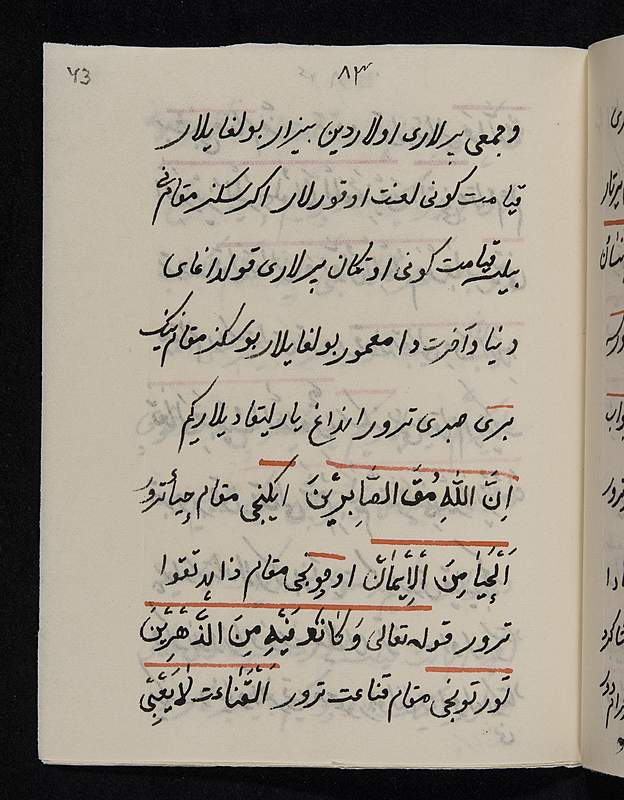 43 ۸۳
و جمعی پیرلاری اولاردین بیزار بولغایلار
قیامت کونی لعنت اوقورلار اکر سکز مقامنی
بیلسه قیامت کونی اوتکان پیرلاری قولداغای
دنیا و آخرت دا معمور بولغایلار بو سکز مقام نینک
بری صبری ترور انداغ یارلیتغادیلار کیم
اِنَّ اللّٰهِ مُعَ الصَّابِرِیْنَ ایکنجی مقام حیأ ترور
اَلْحَیَا مِنَ اْلاِیْمَانْ اوچونجی مقام زاهد تقوا
ترور قوله تعالی وَ کَانُعْ فَیْهِ مِنَ الذَّهِرِیْنَ
تورتونجی مقام قناعت ترور اَلْقَنَاعت لاٰ یَعْنِیْ